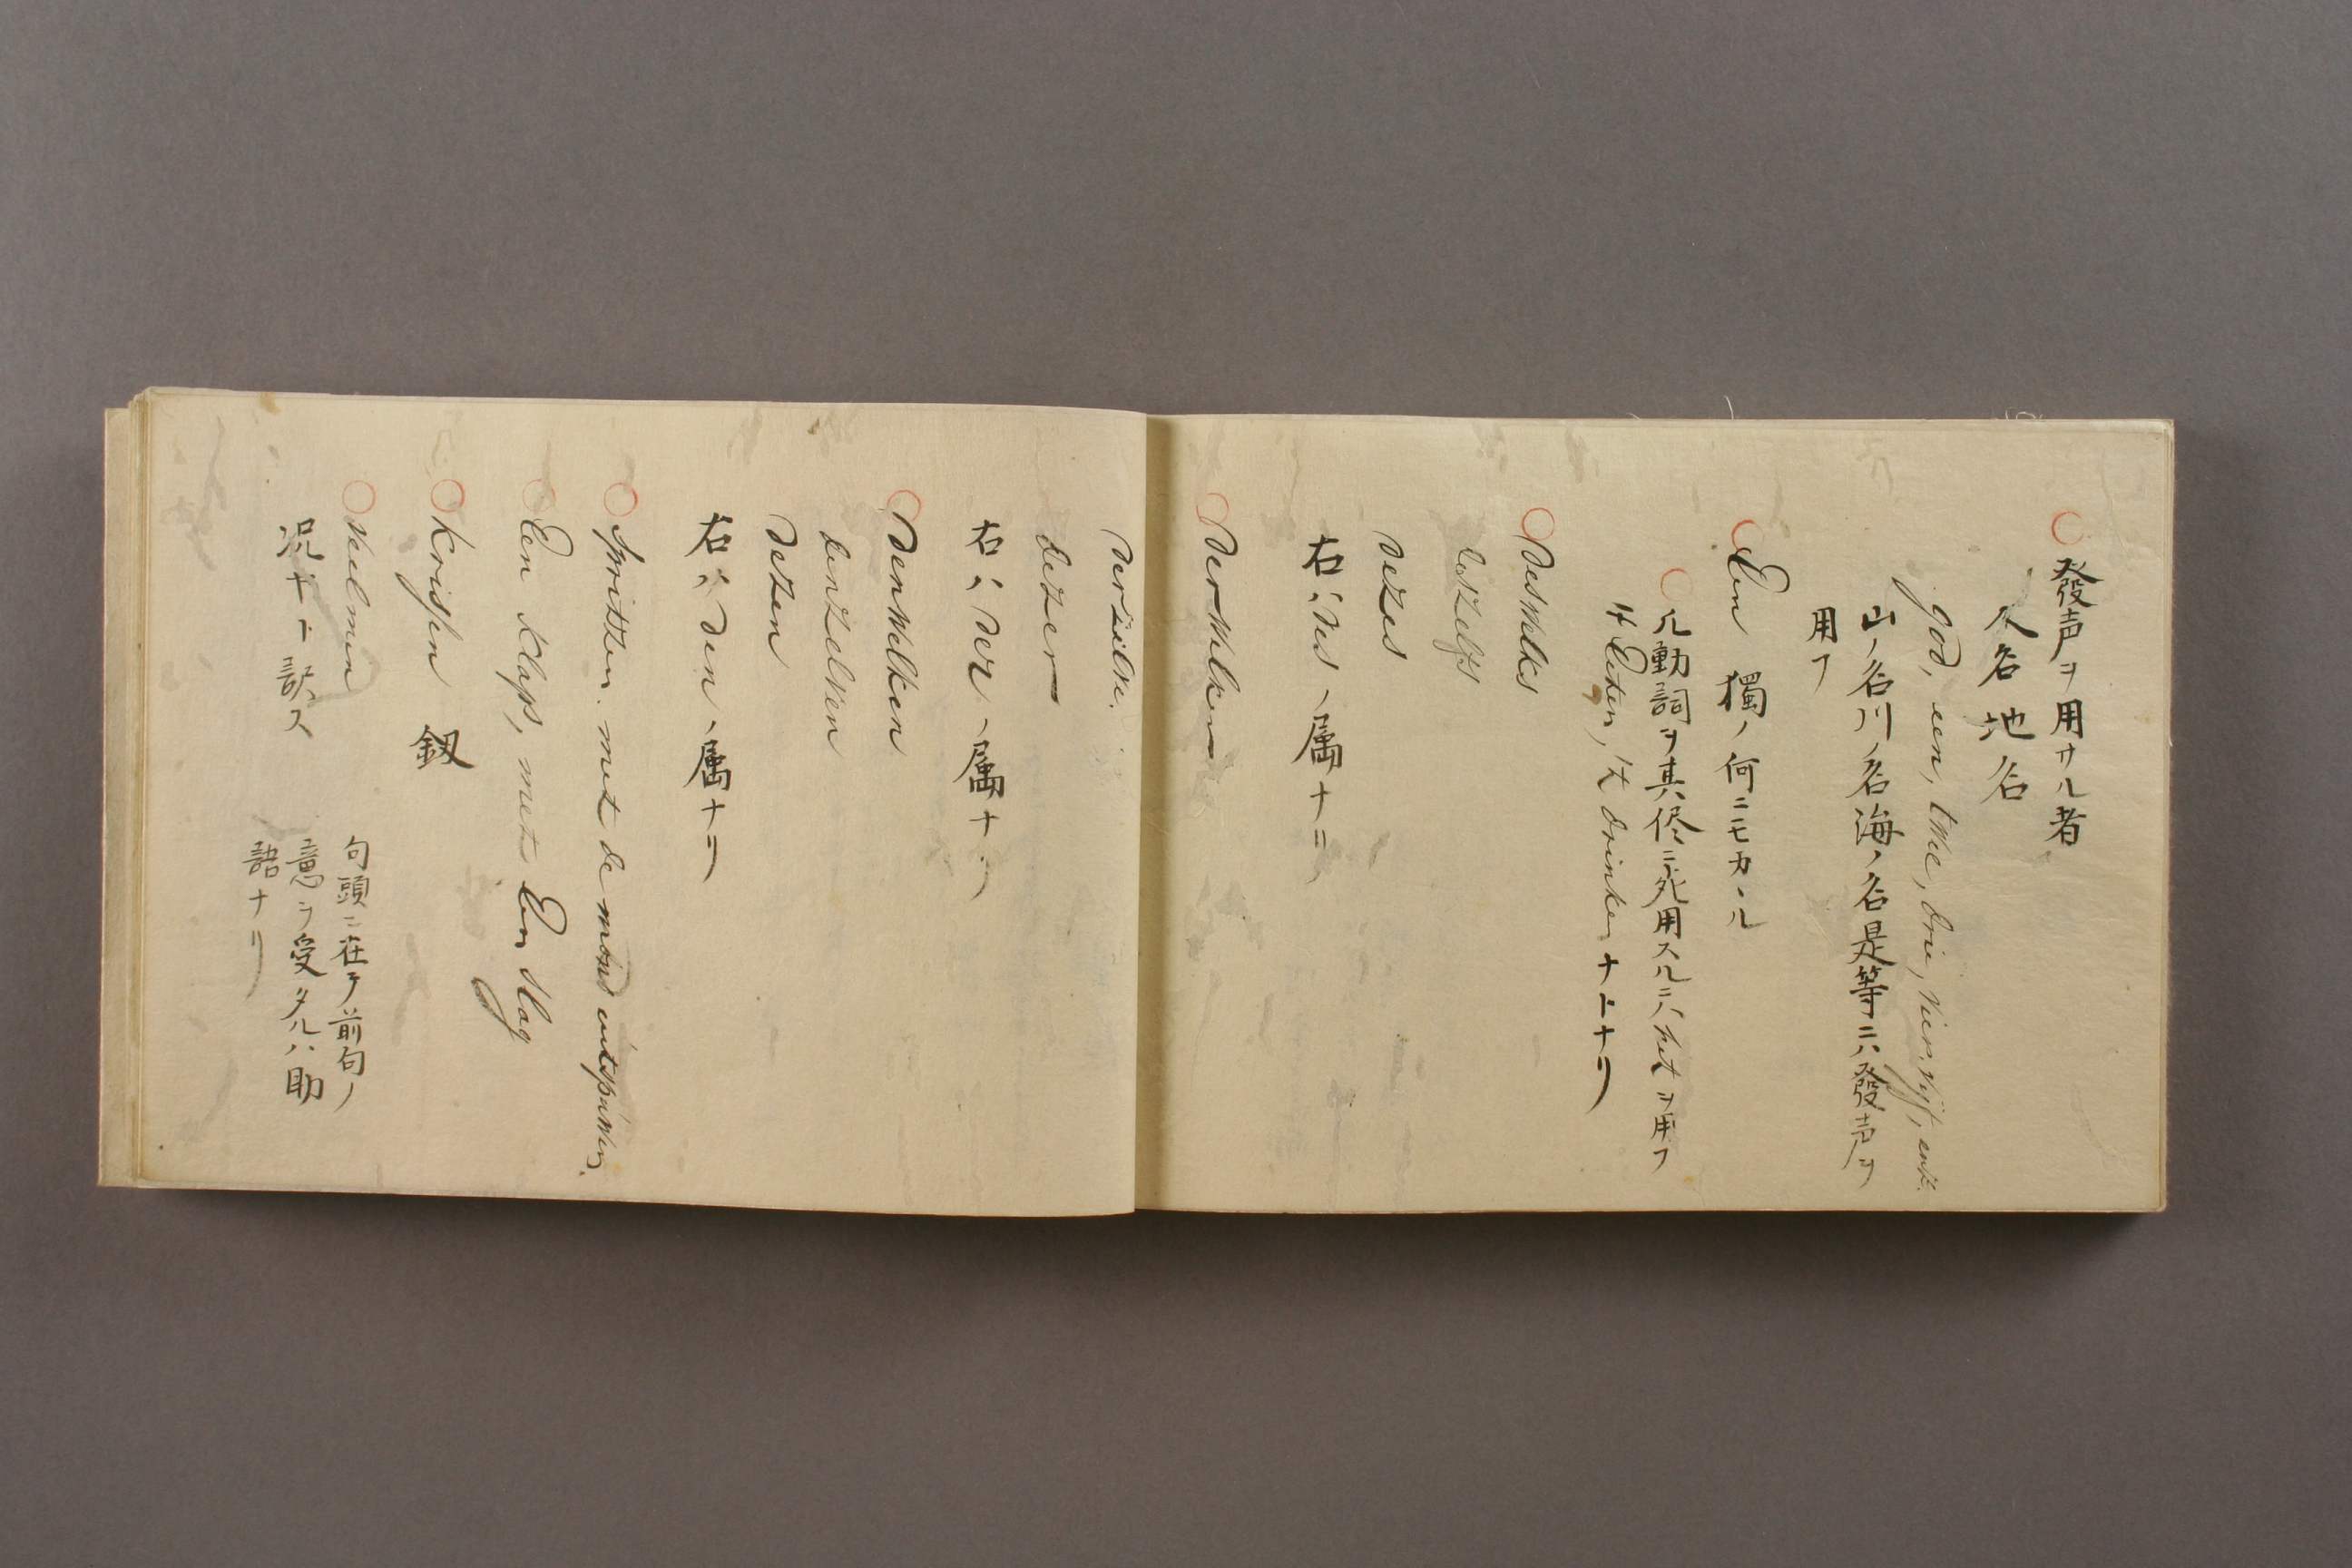 ○發声ヲ用サル者
人名 地名
God, een, twe, drie, vier, vijf, enz.
山ノ名川ノ名海ノ名是等ニハ發声ヲ
用フ
○Een 獨ノ何ニモカヽル
○凡動詞ヲ其侭ニ死用スルニハ het ヲ用フ
't Eeten, 't drinken ナトナリ
○Deswelks
deszelfs
Dezes
右ハ des ノ属ナリ
○Derwelker
Derzelve.
dezer
右ハ der ノ属ナリ
○Denwelken
denzelven
Dezen
右ハ den ノ属ナリ
○Spritzen. met de mond uitspuwen.
○Een klaps, met Een slag
○krissen 釼
○Weetmen 句頭ニ在テ前句ノ
意ヲ受タルハ助
語ナリ
況ヤト訳ス